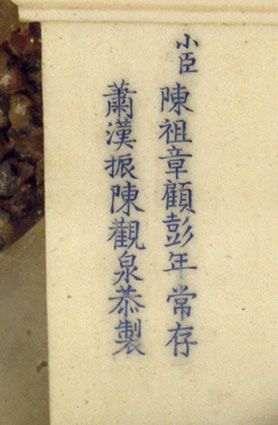 小臣陳祖章顧彭年常存
蕭漢振陳觀泉恭製